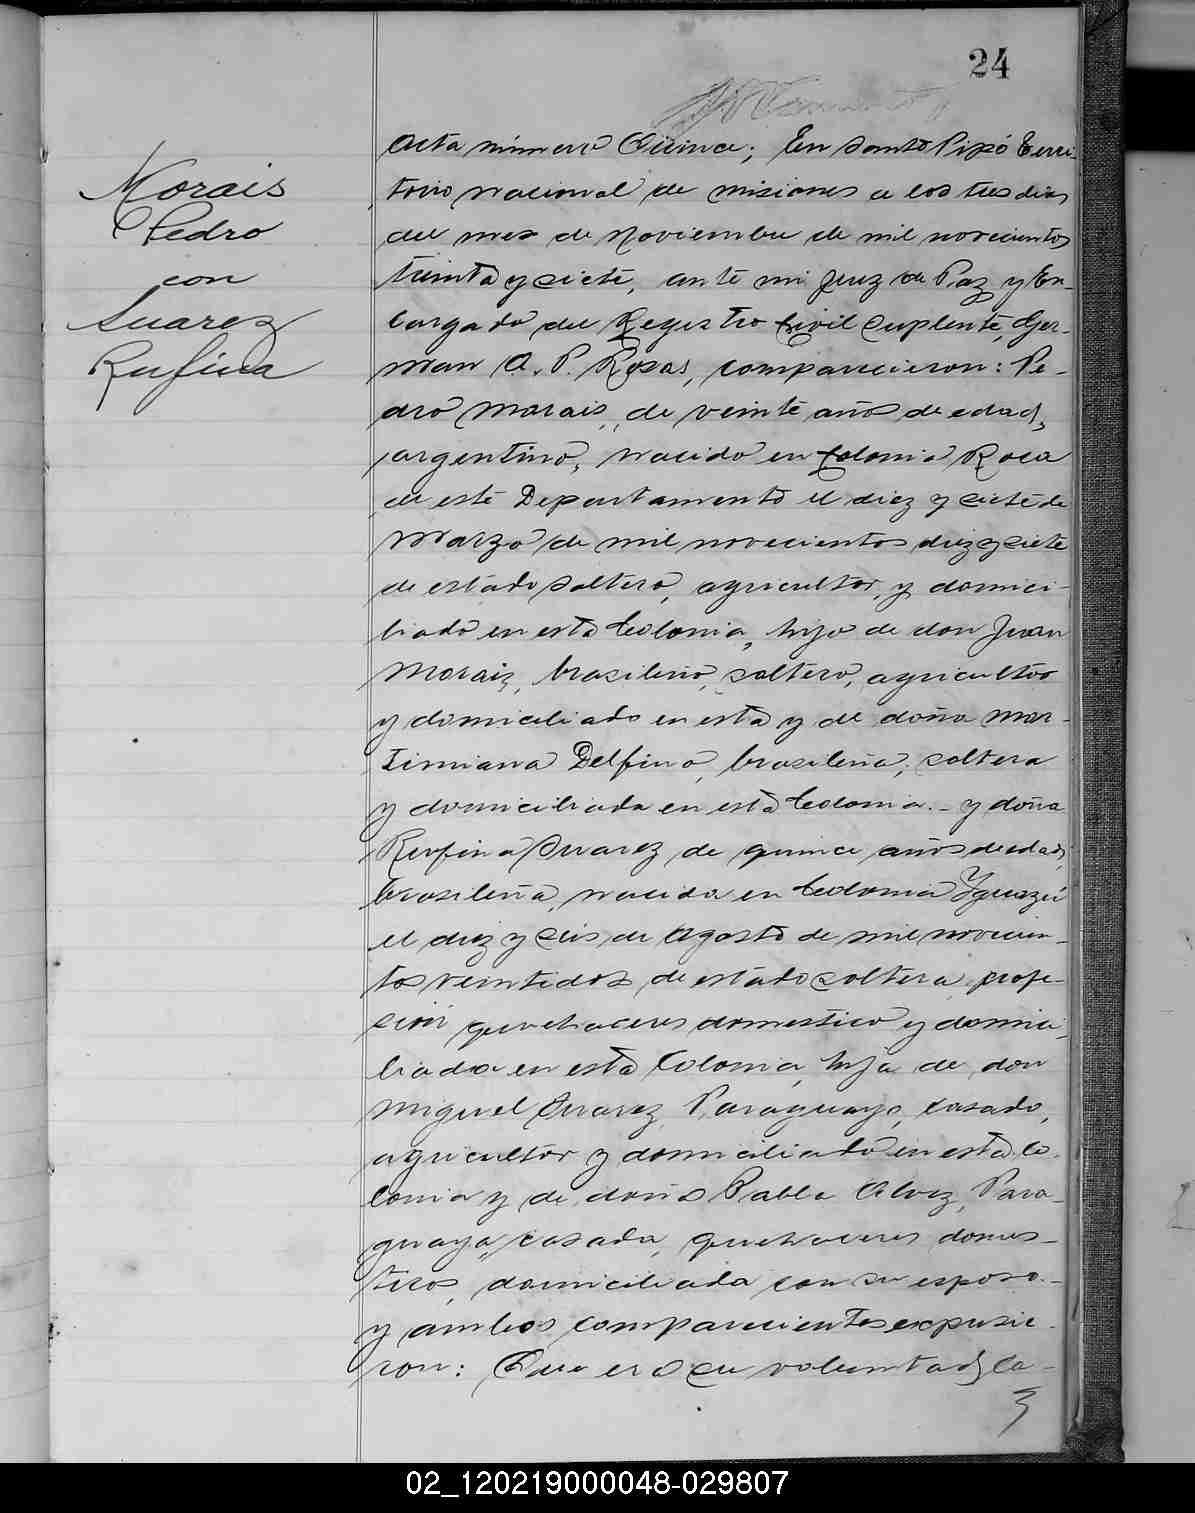 24
Morais
Pedro
con
Suarez
Rufina
Acta número Quince; En Santo Pipó Terri-
torio nacional de misiones a los tres dias
del mes de Noviembre de mil novecientos
treinta y siete, ante mi Juez de Paz y En-
cargado del Registro Civil Suplente, Ger-
man A. P. Rosas, comparecieron: Pe-
dro Morais, de veinte años de edad,
argentino, nacido en Colonia Roca
de este Departamento el diez y siete de
Marzo de mil novecientos diez y siete
de estado soltero, agricultor, y domici-
liado en esta Colonia, hijo de don Juan
Morais, brasileño, soltero, agricultor
y domiciliado en esta y de doña Mar-
timiana Delfino, brasileña, soltera
y domiciliada en esta Colonia.- y doña
Rufina Suarez de quince años de edad,
brasileña, nacida en Colonia Yguazú
el diez y seis de Agosto de mil novecien-
tos veintidos de estado soltera, profe-
sión quehaceres domestico y domici-
liada en esta Colonia, hija de don
Miguel Suarez, Paraguayo, casado,
agricultor y domiciliado en esta Co-
lonia y de doña Pabla Alvez, Para-
guaya, casada, quehaceres domes-
ticos, domiciliada con su esposo.-
y ambos comparecientes expusie-
ron: Que era su voluntad ca-
02_120219000048-029807